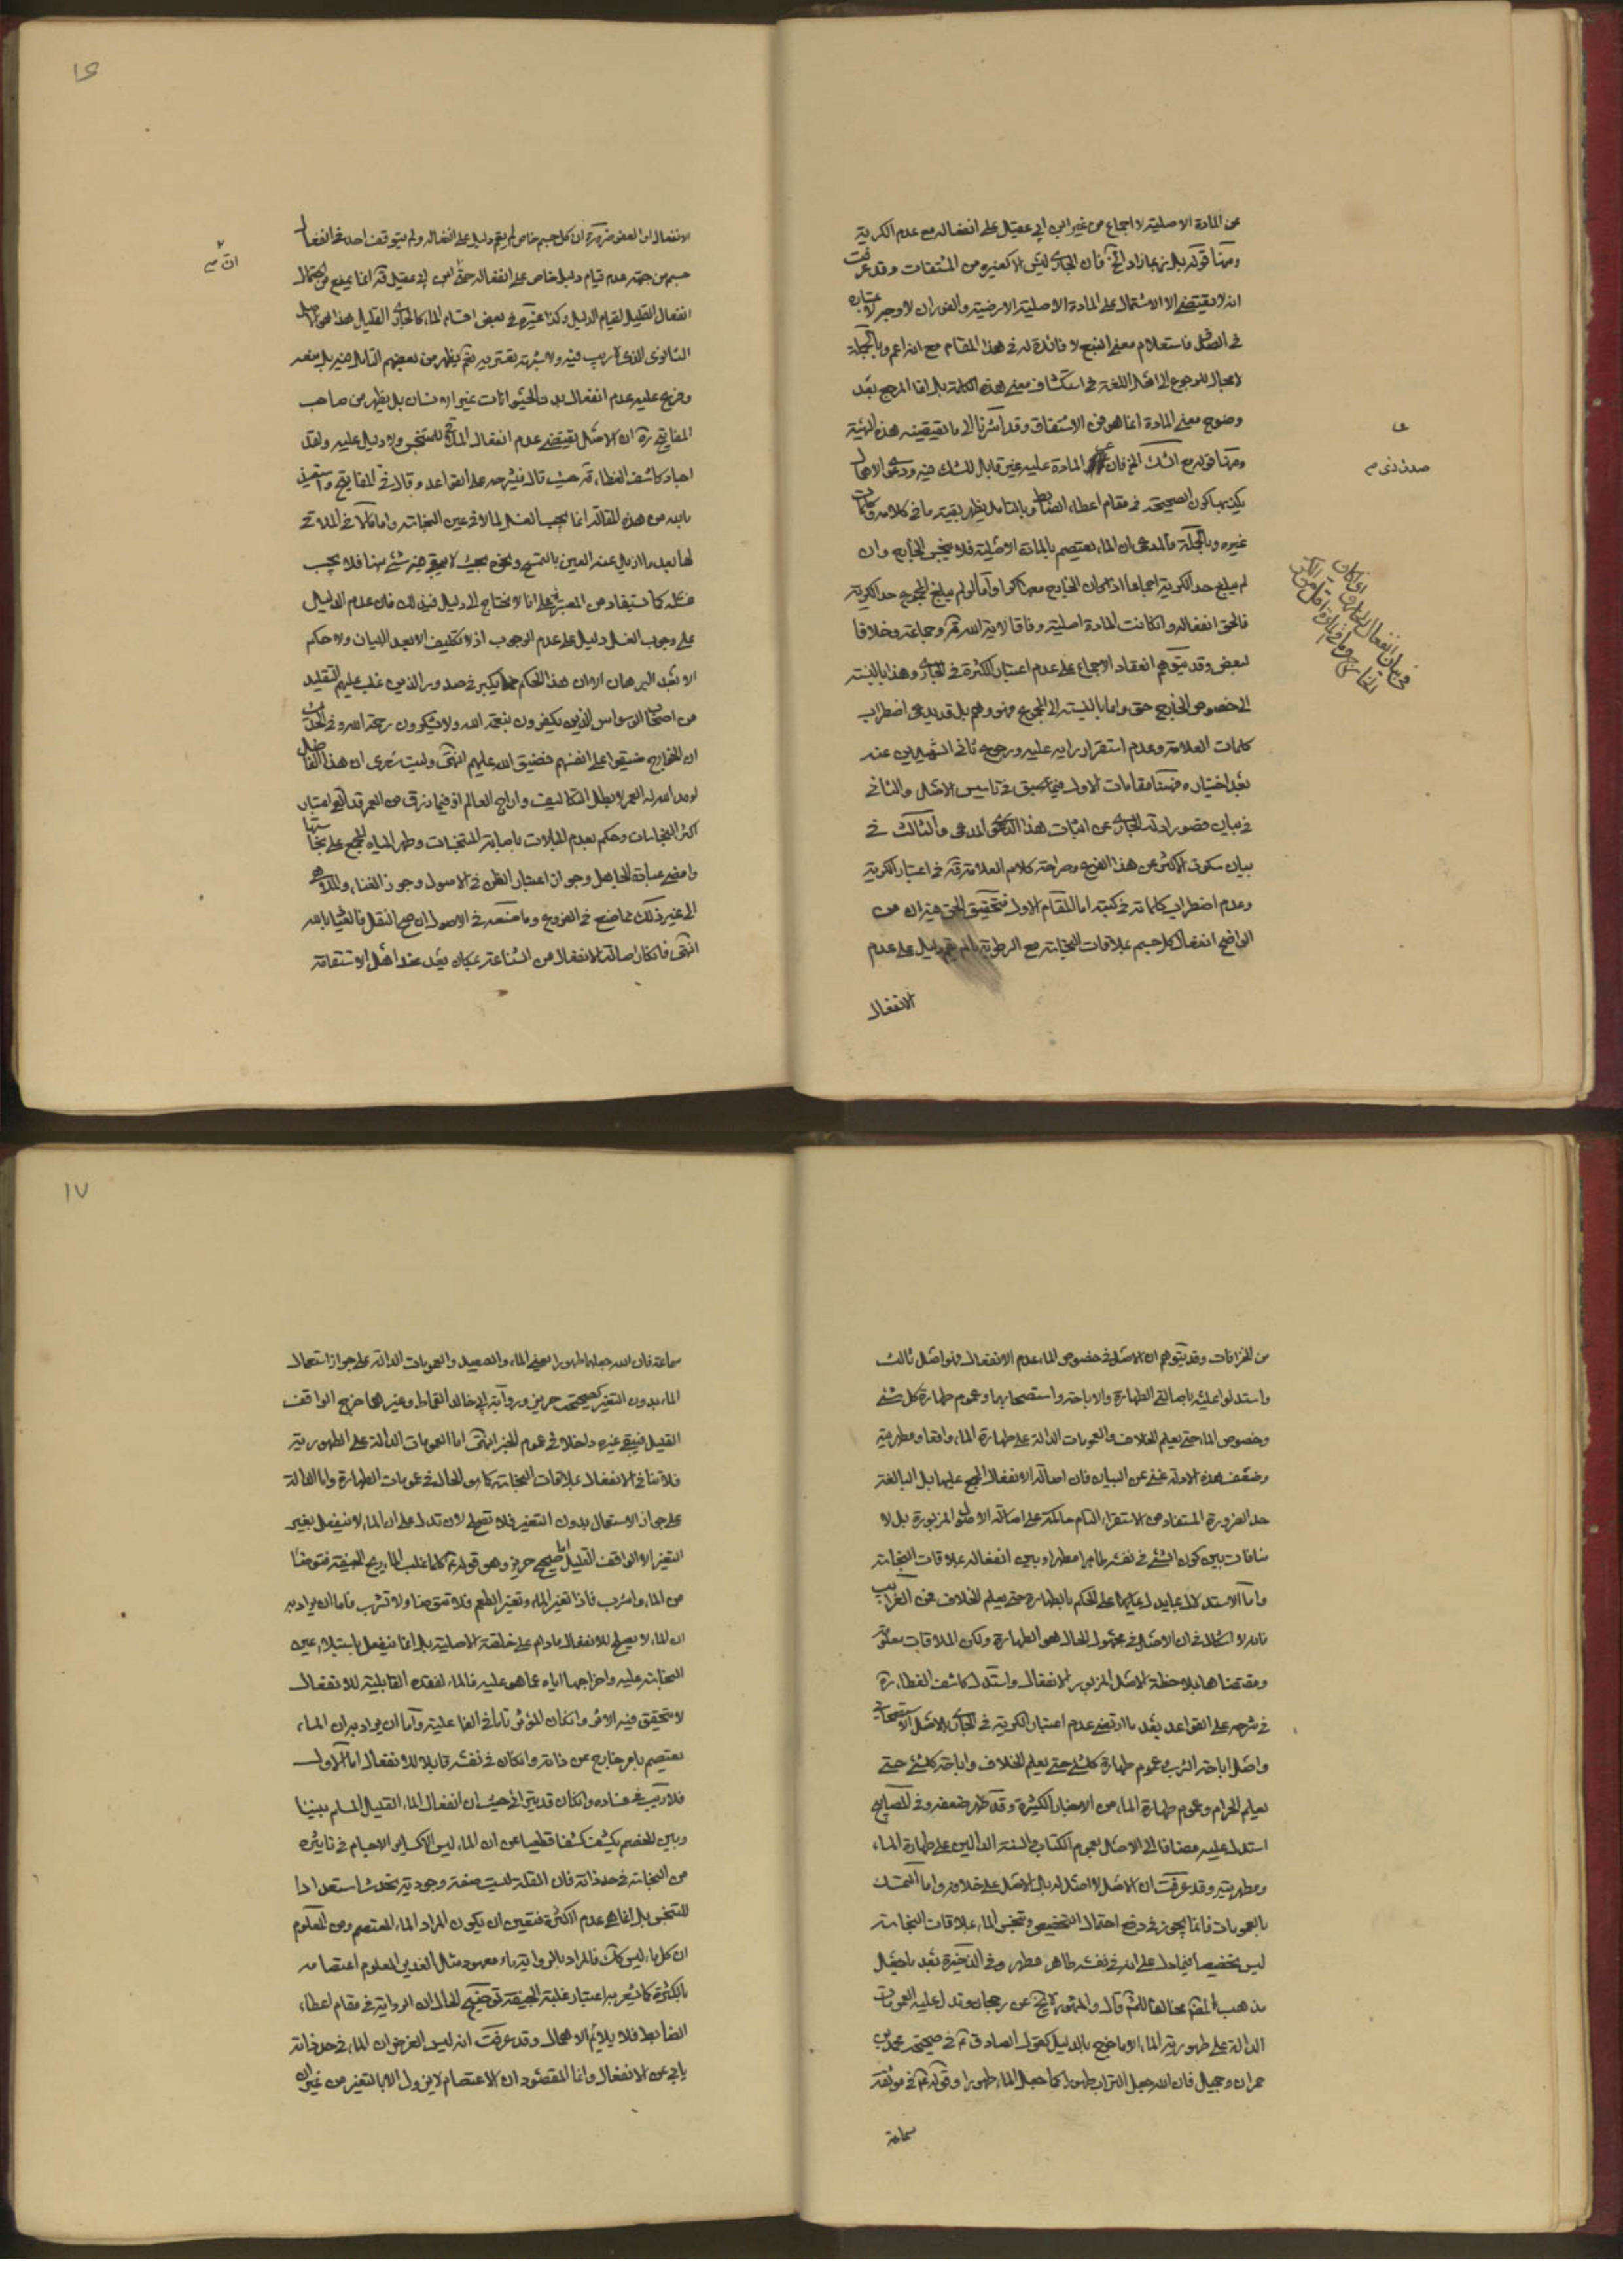 عن المادة الاصلية لا اجماع من غير ابن ابي عقيل على انفعاله مع عدم الكرية
ومنها قوله بل يزيد بما زاد الخ فان الجاري ليس الا كغيره من المشتقات وقد عرفت
انه لا يقتضى الا الاشتمال على المادة الاصلية الارضية والفوران لا وجه لاعتباره
في الصدق فاستعلام معنى النبع لا فائدة له في هذا المقام مع انه اعم وبالجملة
لا مجال للرجوع الى اهل اللغة في استكشاف معنى هذه الكلمة بل انما المرجع بعد
وضوح معنى المادة انما هو فن الاشتقاق وقد اشرنا الى ما يقتضيه هذه الهيئة
ومنها قوله مع الشك الخ فان المادة عليه غير قابل للشك فيه ودعوى الاهمال
يكذبها كون الصحيحة في مقام اعطاء الضابط وبالتامل يظهر بقية ما في كلامه وكلمات
غيره وبالجملة فالمدعى ان الماء يعتصم بالمادة الاصلية فلا ينجس الخارج وان
لم يبلغ حد الكرية اجماعا اذا كان الخارج معها كرا واما لو لم يبلغ المجموع حد الكرية
فالحق انفعاله وان كانت المادة اصلية وفاقا لاية الله قده وجماعة وخلافا
لبعض وقد يتوهم انعقاد الاجماع على عدم اعتبار الكثرة في الجاري وهذا بالنسبة
الى خصوص الخارج حق واما بالنسبة الى المجموع فهو وهم بل قد يدعى اضطراب
كلمات العلامة وعدم استقرار رايه عليه ورجوع ثاني الشهيدين عنه
بعد اختياره فهنا مقامات الاول فيما سبق في تاسيس الاصل والثاني
في بيان قصور ادلة الجاري عن اثبات هذا الدعوى المدعى والثالث في
بيان سكوت الاكثر عن هذا الفرع وصراحة كلام العلامة قده في اعتبار الكرية
وعدم اضطراب كلماته في كتبه اما المقام الاول فتحقيق الحق فيه ان من
الواضح انفعال كل جسم بملاقات النجاسة مع الرطوبة ما لم يقم دليل على عدم
الانفعال
صدق ذى م
في بيان انفعال الجاري اذا كان
١٦
الانفعال او العفو ضرورة ان كل جسم خاص لم يقم دليل على انفعاله ولم يتوقف احد في انفعال
جسم من جهة عدم قيام دليل خاص على انفعاله حتى ابن ابي عقيل قده انما يمنع من احتمال
انفعال القليل لقيام الدليل وكذا غيره في بعض اقسام الماء كالجاري القليل هذا هو الاصل
الثانوى الذى لا ريب فيه ولا شبهة تعتريه نعم يظهر من بعضهم التامل فيه بل منعه
وفرع عليه عدم انفعال بدن الحيوانات غير الانسان بل يظهر من صاحب
المفاتيح ره ان الاصل يقتضى عدم انفعال الملاقى للمتنجس ولا دليل عليه ولقد
اجاد كاشف الغطاء قده حيث قال في شرحه على القواعد وقال في المفاتيح واستعيذ
بالله من هذه المقالة انما يجب الغسل لما لاقى عين النجاسة واما كلا في الملاقى
لها بعد ما ازيل عنه العين بالتمسح ونحوه بحيث لا يبقى فيه شئ منها فلا يجب
غسله كما يستفاد من المعتبرة على انا لا نحتاج الى دليل في ذلك فان عدم الدليل
على وجوب الغسل دليل على عدم الوجوب اذ لا تكليف الا بعد البيان ولا حكم
الا بعد البرهان الا ان هذا الحكم مما يكبر في صدور الذين غلب عليهم التقليد
من اصحاب الوسواس الذين يكفرون بنعمة الله ولا يشكرون رحمة الله وفي الحديث
ان الخوارج ضيقوا على انفسهم فضيق الله عليهم انتهى وليت شعرى ان هذا الفاضل
لو مد الله له العمر لابطل التكاليف واراح العالم اذ فيما رزق من العمر قد الغى اعتبار
اكثر النجاسات وحكم بعدم المبالات باصابة المتنجسات وطهر المياه المجمع على نجاستها
وامضى عبادة الجاهل وجوز اعتبار الظن في الاصول وجوز الغناء والملاهى
الى غير ذلك مما صنع في الفروع وما صنعه في الاصول ان صح النقل فالعياذ بالله
انتهى فانكار اصالة الانفعال من الشناعة بمكان يعد عند اهل الاستقامة
من الخرافات وقد يتوهم ان الاصل في خصوص الماء عدم الانفعال فهو اصل ثالث
واستدلوا عليه باصالتى الطهارة والاباحة واستصحابهما وعموم طهارة كل شئ
وخصوص الماء حتى يعلم الخلاف والعمومات الدالة على طهارة الماء واقعا ومطهريته
وضعف هذه الادلة غنى عن البيان فان اصالة الانفعال المجمع عليها بل البالغة
حد الضرورة المستفاد من الاستقراء التام حاكمة على اصالة الاصول المزبورة بل لا
منافات بين كون الشئ في نفسه طاهرا مطهرا وبين انفعاله بملاقات النجاسة
واما الاستدلال بما يدل على الحكم بالطهارة حتى يعلم الخلاف فمن الغرائب
فانه لا اشكال في ان الاصل في مجهول الحال هو الطهارة ولكن الملاقات معلومة
ومقتضاها بملاحظة الاصل المزبور الانفعال واستدل كاشف الغطاء ره
في شرحه على القواعد بعد ما ارتضى عدم اعتبار الكرية في الجارى بالاصل الاستصحابى
واصل اباحة الشرب وعموم طهارة كل شئ حتى يعلم الخلاف واباحة كل شئ حتى
يعلم الحرام وعموم طهارة الماء من الاخبار الكثيرة وقد ظهر ضعفه وفى المصابيح
استدل عليه مضافا الى الاصل بعموم الكتاب والسنة الدالين على طهارة الماء
ومطهريته وقد عرفت ان الاصل لا اصل له بل الاصل على خلافه واما التمسك
بالعمومات فانما يجوز في دفع احتمال التخصيص وتنجس الماء بملاقات النجاسة
ليس تخصيصا فيما دل على انه في نفسه طاهر مطهر وفى الذخيرة بعد ما جعل
مذهب العلامة مخالفا للشهرة قال والمشهور لا يخ عن رجحان وتدل عليه العمومات
الدالة على طهورية الماء الا ما خرج بالدليل كقول الصادق ع في صحيحة محمد بن
حمران وجميل فان الله جعل التراب طهورا كما جعل الماء طهورا وقوله ع في موثقة
سماعة
١٧
سماعة فان الله جعلهما طهورا يعنى الماء والصعيد والعمومات الدالة على جواز استعمال
الماء بدون التغير كصحيحة حريز ورواية ابى خالد القماط وغيرهما خرج الواقف
القليل فيبقى غيره داخلا في عموم الخبر انتهى اما العمومات الدالة على الطهورية
فلا تنافى الانفعال بملاقات النجاسة كما هو الحال في عمومات الطهارة واما الدالة
على جواز الاستعمال بدون التغير فلا تصح لان تدل على ان الماء لا ينفعل بغير
التغير الا الواقف القليل اما صحيح حريز وهو قوله ع كلما غلب الماء ريح الجيفة فتوضأ
من الماء واشرب فاذا تغير الماء وتغير الطعم فلا تتوضأ ولا تشرب فاما ان يراد به
ان الماء لا يصلح للانفعال ما دام على خلقته الاصلية بل انما ينفعل باستيلاء عين
النجاسة عليه واخراجها اياه عما هو عليه فالماء لفقده القابلية للانفعال
لا يتحقق فيه الاثر وان كان المؤثر تاما في الفاعلية واما ان يراد به ان الماء
يعتصم بامر خارج عن ذاته وان كان في نفسه قابلا للانفعال اما الاول
فلا ريب في فساده وان كان قد يترائى حيث ان انفعال الماء القليل المسلم بيننا
وبين الخصم يكشف كشفا قطعيا عن ان الماء ليس الا كسائر الاجسام في تاثيره
من النجاسة في حد ذاته فان القلة ليست صفة وجودية تحدث استعدادا
للتنجس بل انما هى عدم الكثرة فتعين ان يكون المراد الماء المعتصم ومن المعلوم
ان كل ماء ليس كذلك فالمراد بالرواية ماء معهود مثل الغدير المعلوم اعتصامه
بالكثرة كما يشعر به اعتبار غلبة الجيفة توضيح الحال ان الرواية في مقام اعطاء
الضابط فلا يلائم الاهمال وقد عرفت انه ليس الغرض ان الماء في حد ذاته
يابى عن الانفعال وانما المقصود ان الاعتصام لا يزول الا بالتغير من غير ان